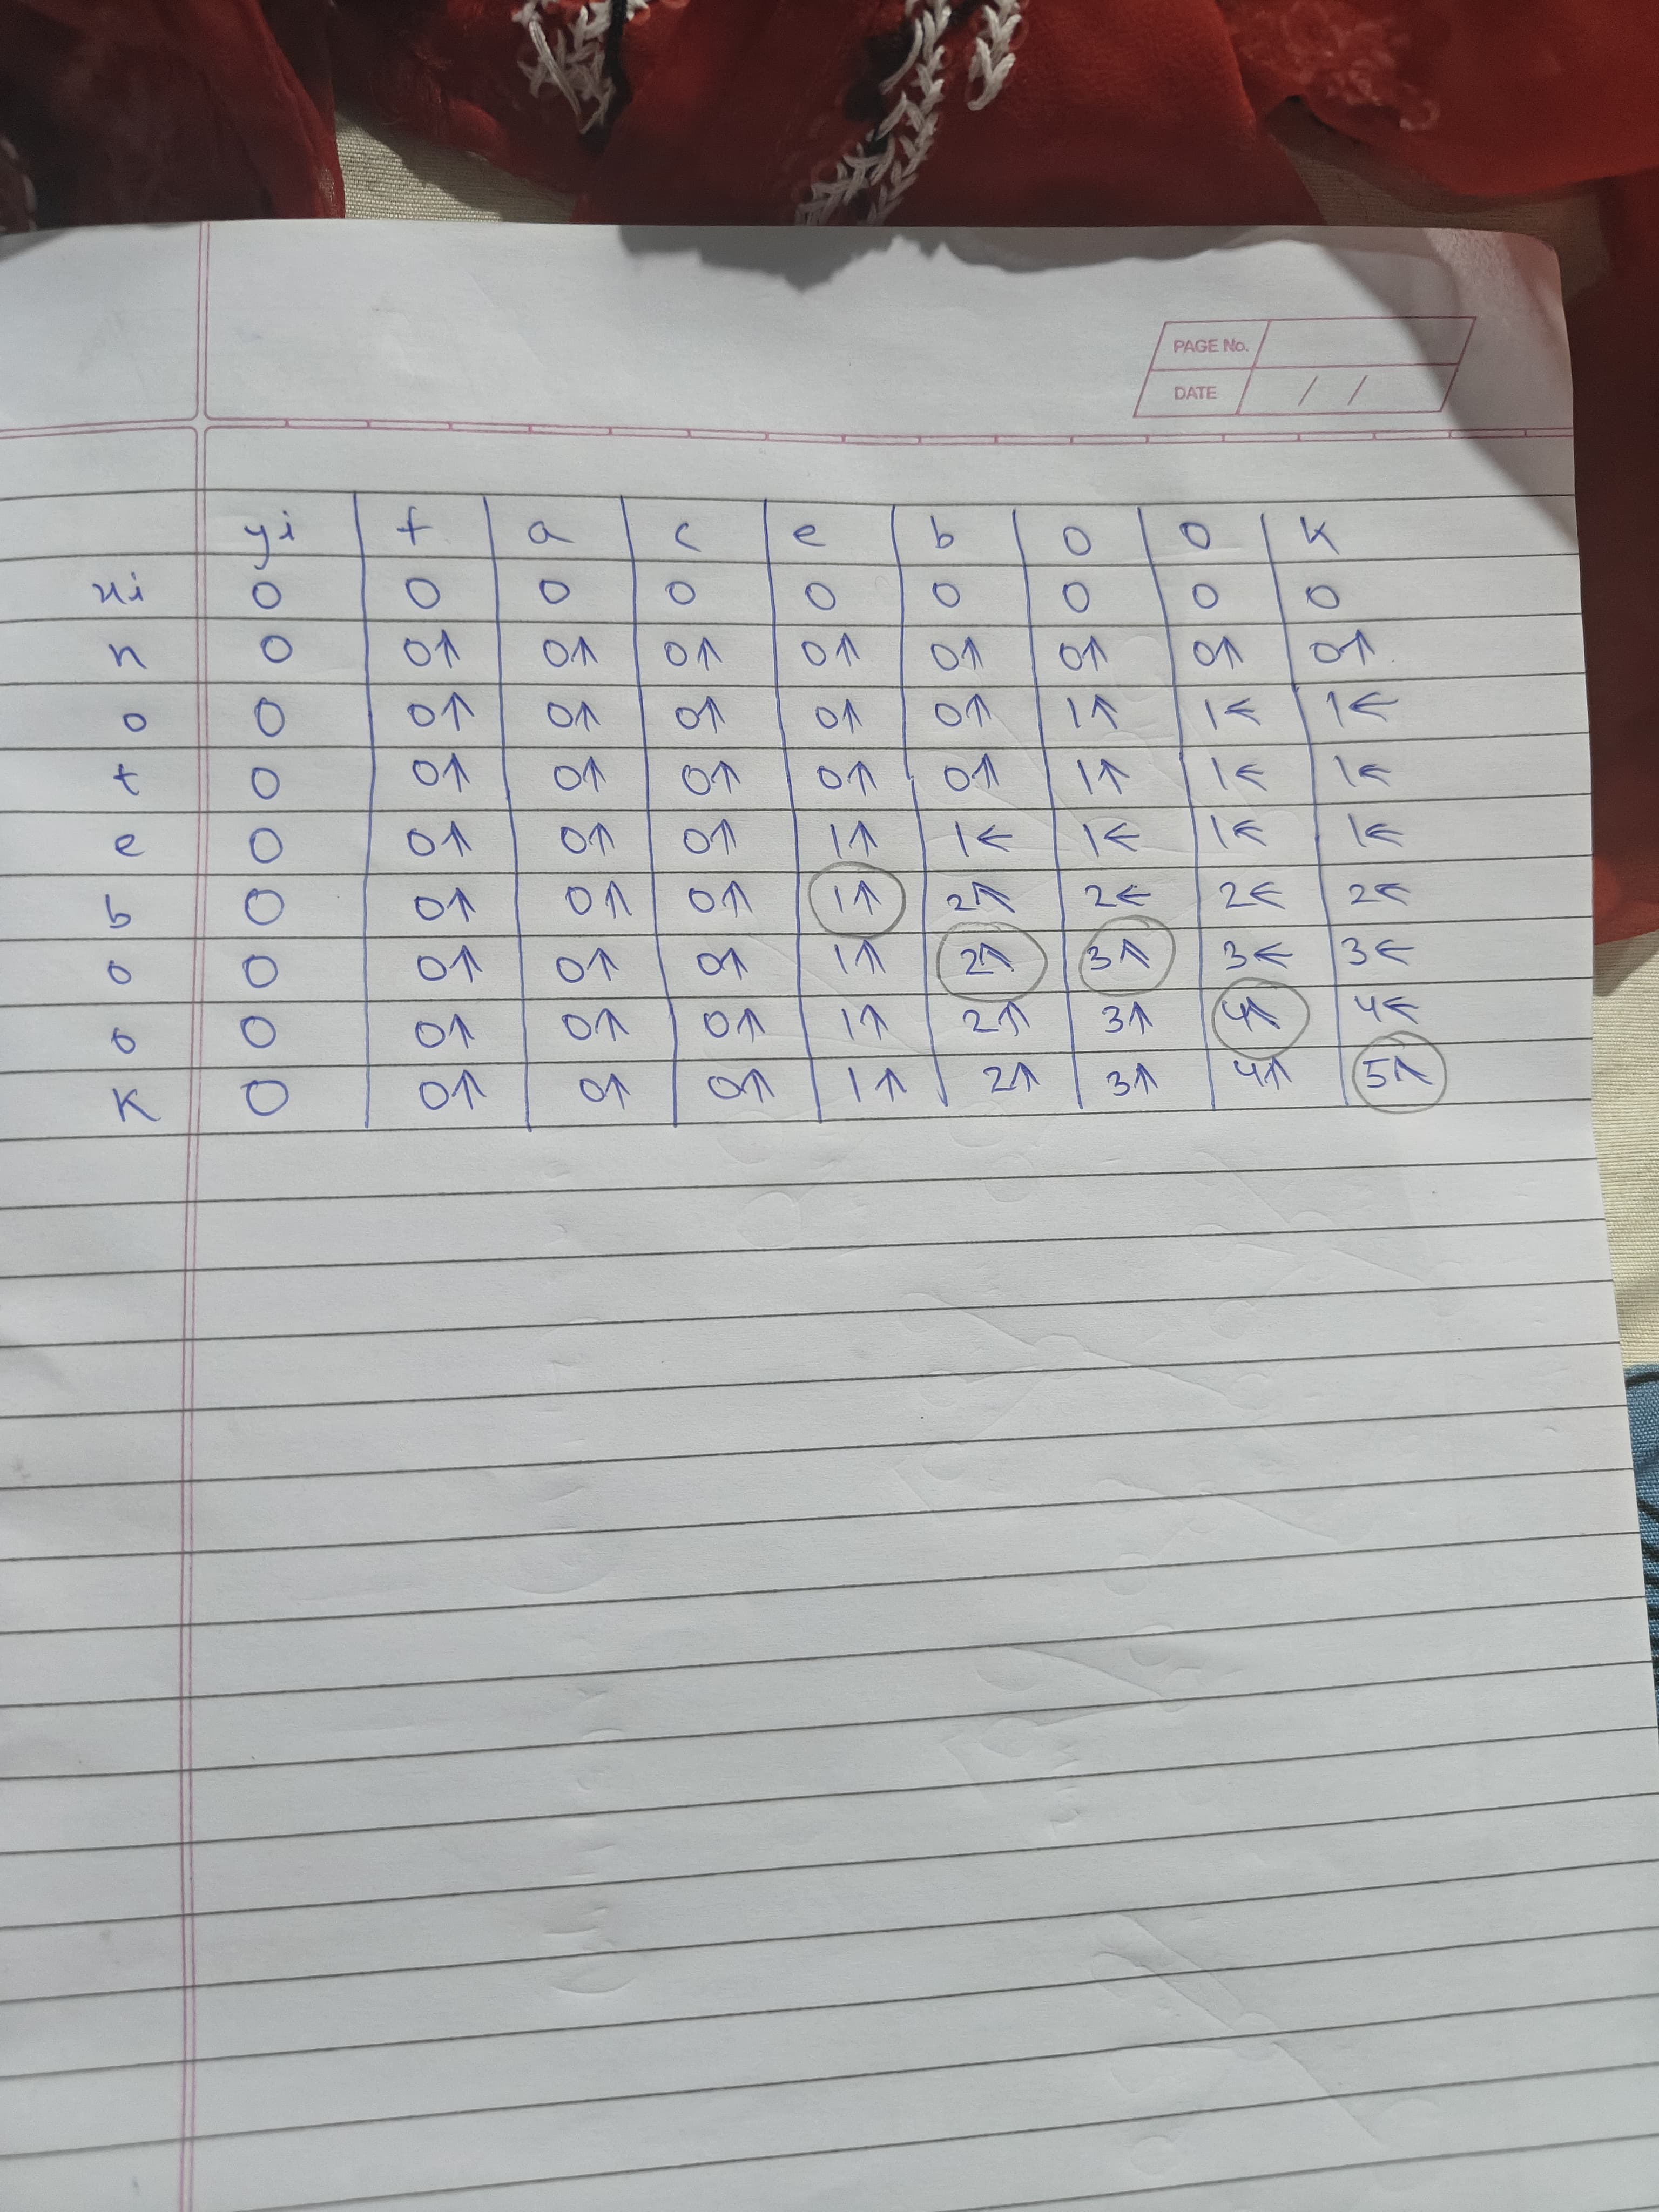 PAGE No.
DATE / /
yi f a c e b o o k
xi 0 0 0 0 0 0 0 0 0
n 0 0↑ 0↑ 0↑ 0↑ 0↑ 0↑ 0↑ 0↑
o 0 0↑ 0↑ 0↑ 0↑ 0↑ 1↖ 1← 1←
t 0 0↑ 0↑ 0↑ 0↑ 0↑ 1↑ 1← 1←
e 0 0↑ 0↑ 0↑ 1↖ 1← 1← 1← 1←
b 0 0↑ 0↑ 0↑ 1↑ 2↖ 2← 2← 2←
o 0 0↑ 0↑ 0↑ 1↑ 2↖ 3↖ 3← 3←
o 0 0↑ 0↑ 0↑ 1↑ 2↑ 3↑ 4↖ 4←
k 0 0↑ 0↑ 0↑ 1↑ 2↑ 3↑ 4↑ 5↖